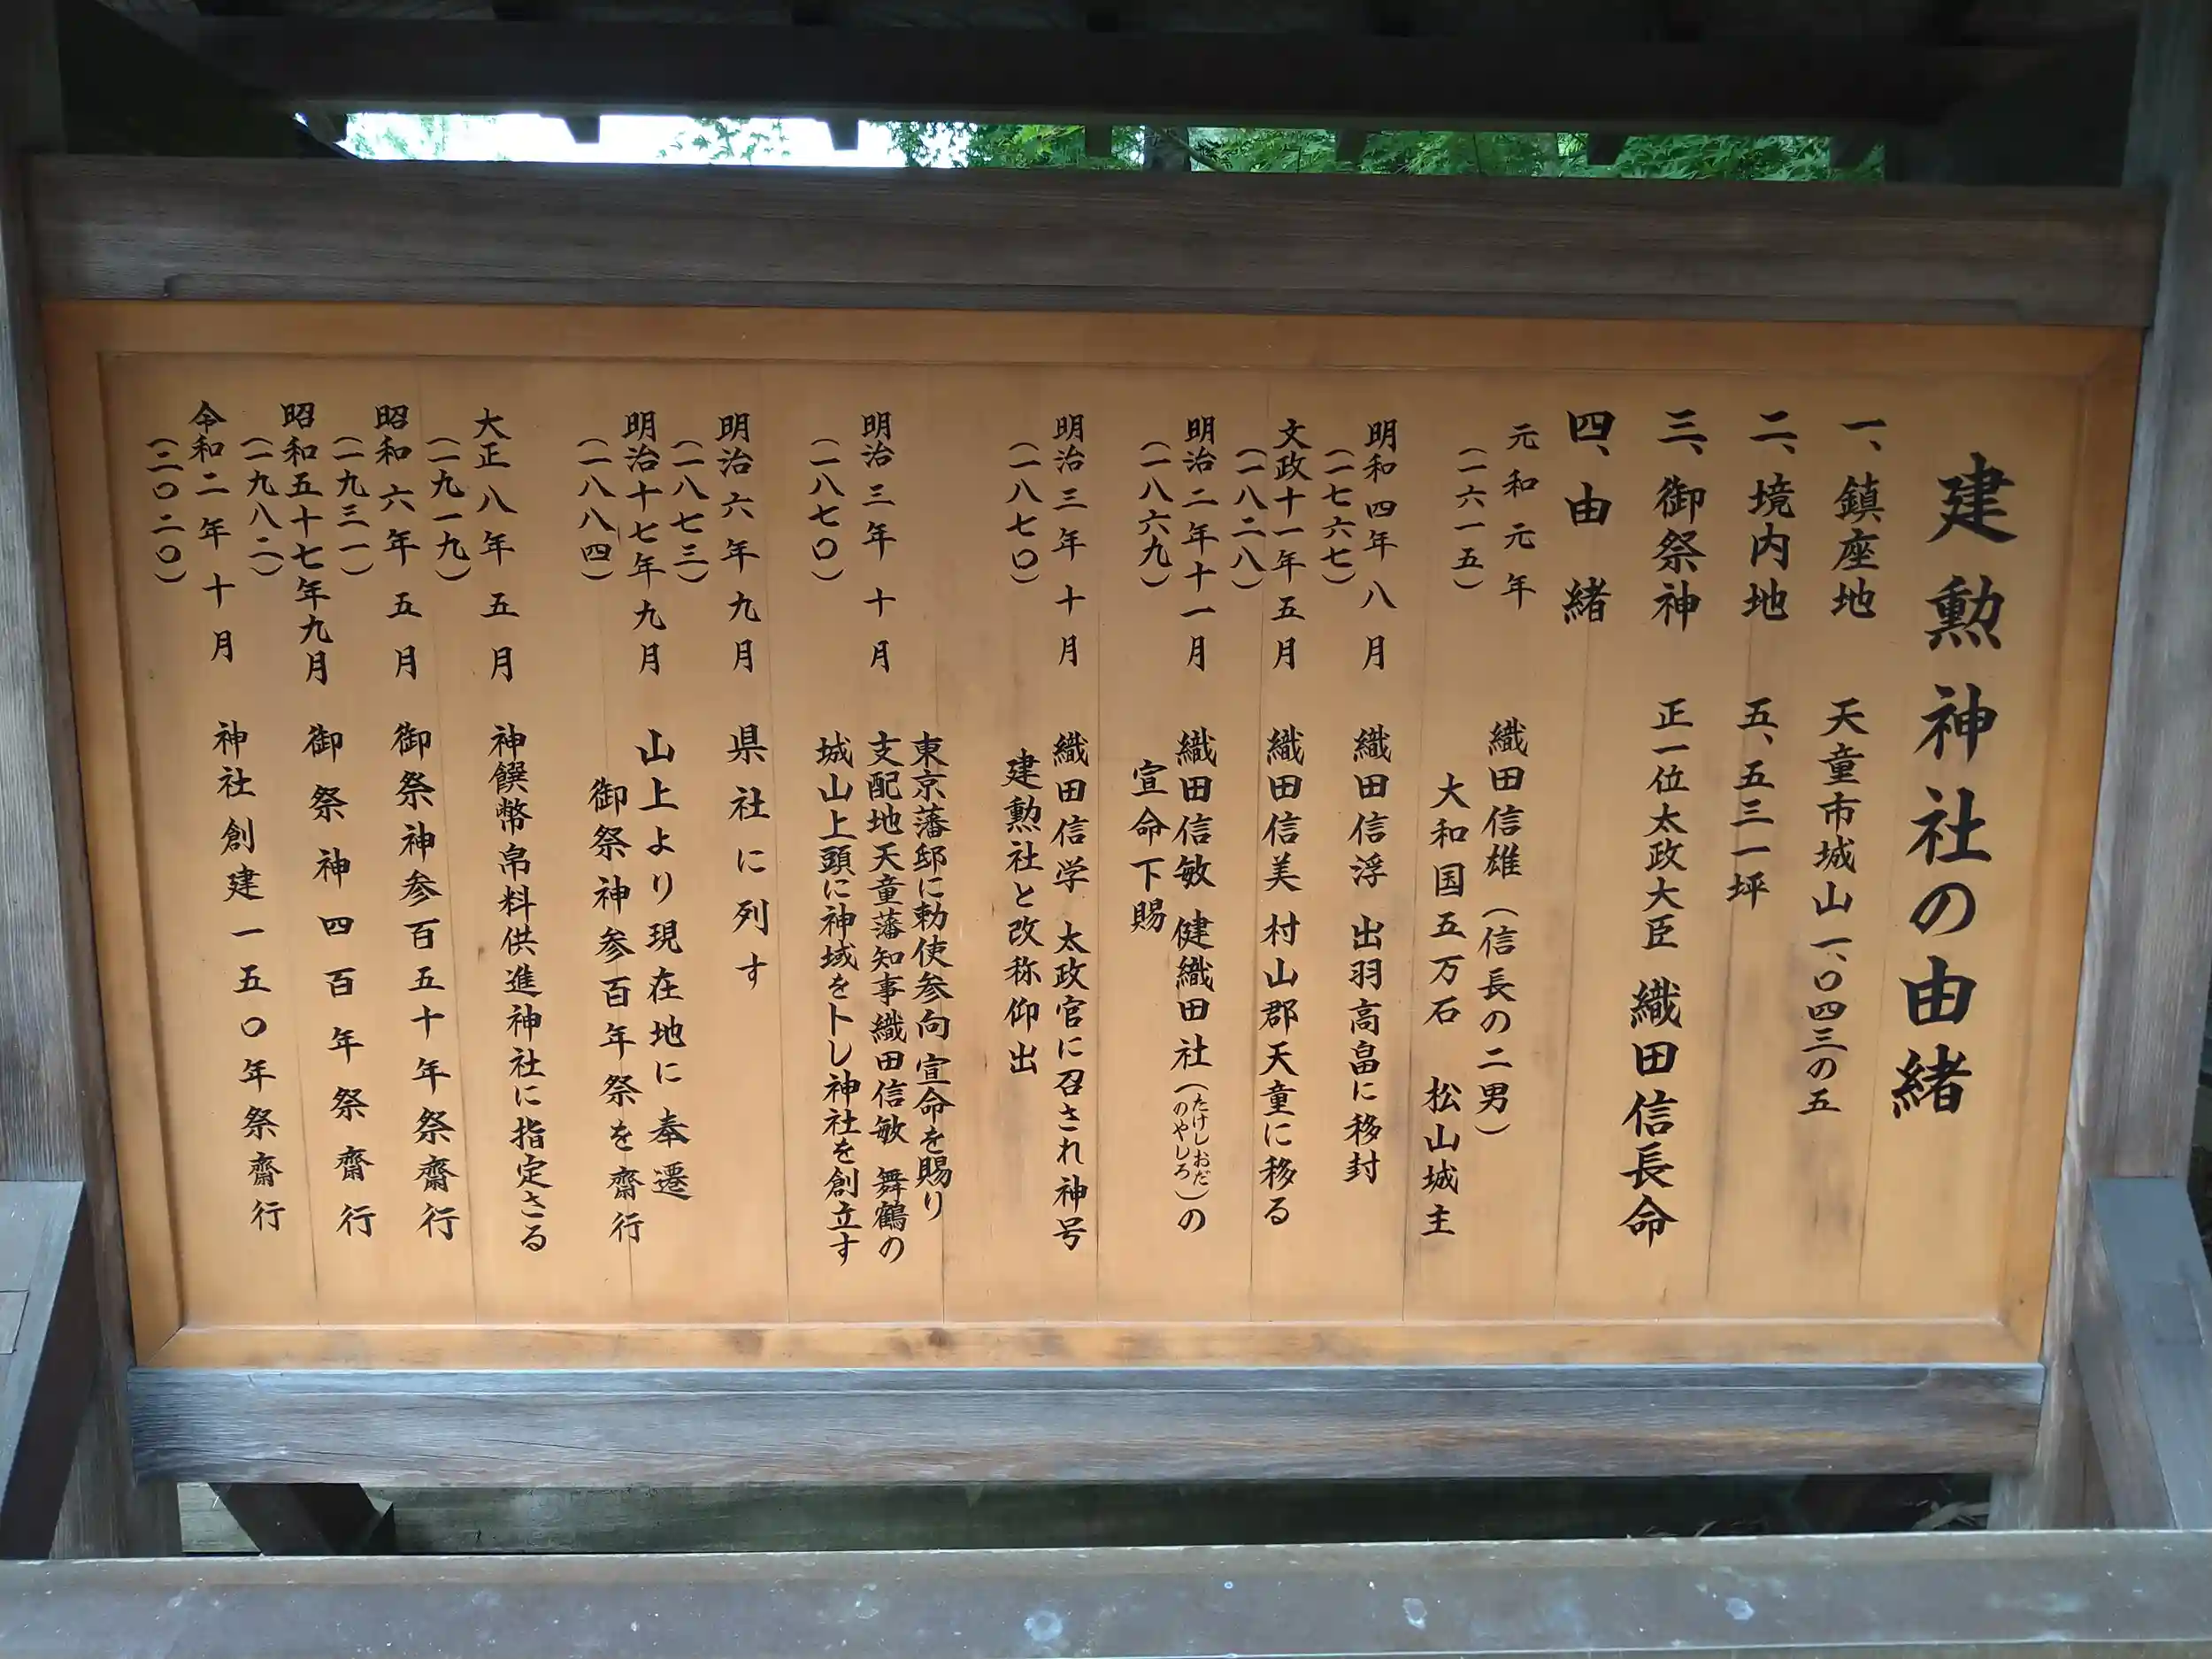 建勲神社の由緒
一、鎮座地 天童市城山一、〇四三の五
二、境内地 五、五三一坪
三、御祭神 正一位太政大臣 織田信長命
四、由緒
元和元年 織田信雄(信長の二男)
(一六一五) 大和国五万石 松山城主
明和四年八月 織田信浮 出羽高畠に移封
(一七六七)
文政十一年五月 織田信美 村山郡天童に移る
(一八二八)
明治二年十一月 織田信敏 健織田社(たけしおだのやしろ)の
(一八六九) 宣命下賜
明治三年十月 織田信学 太政官に召され神号
(一八七〇) 建勲社と改称仰出
東京藩邸に勅使参向 宣命を賜り
明治三年十月 支配地天童藩知事織田信敏 舞鶴の
(一八七〇) 城山上頭に神域を卜し神社を創立す
明治六年九月 県社に列す
(一八七三)
明治十七年九月 山上より現在地に奉遷
(一八八四) 御祭神参百年祭を齋行
大正八年五月 神饌幣帛料供進神社に指定さる
(一九一九)
昭和六年五月 御祭神参百五十年祭齋行
(一九三一)
昭和五十七年九月 御祭神四百年祭齋行
(一九八二)
令和二年十月 神社創建一五〇年祭齋行
(二〇二〇)